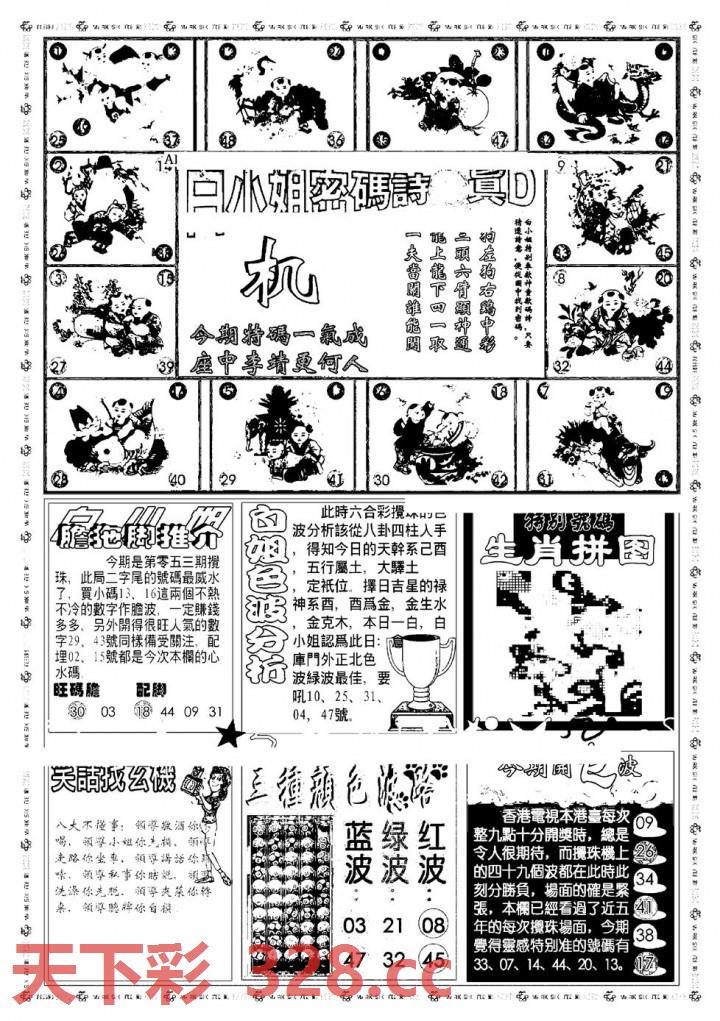 白小姐密碼詩
真D
机
今期特碼一氣成
座中李靖更何人
狗左狗右鷄中彩
三頭六臂顯神通
能上龍下四一取
一夫當關誰能開
25 37
48 36
47
9 21
13 15
27 39
8 20
32 44
28 40
29 41
30 42
31
白小姐
膽拖脚推介
今期是第零五三期攪
珠，此局二字尾的號碼最威水
了，買小碼13、16這兩個不熱
不冷的數字作膽波，一定賺錢
多多，另外開得很旺人氣的數
字29、43號同樣備受關注，配
埋02、15號都是今次本欄的心
水碼。
旺碼膽 配脚
30 03 18 44 09 31
白姐色波分析
此時六合彩攪珠的色
波分析該從八卦四柱入手
，得知今日的天幹系己酉
，五行屬土，大驛土
，定衹位。擇日吉星的禄
神系酉，酉爲金，金生水
，金克木，本日一白，白
小姐認爲此日：
庫門外正北色
波綠波最佳，要
吼10、25、31、
04、47號。
特别號碼
生肖拼图
笑話找玄機
八夫不懂事：領導敬酒你不
喝，領導小姐你先摸，領導
走路你坐車，領導講話你
，領導私事你
洗澡你先脱，領導夾菜你
来，領導聽牌你自摸。
三種顔色波路
蓝波： 03 47
绿波： 21 32
红波： 08 45
今期開色波
香港電視本港臺每次
整九點十分開獎時，總是
令人很期待，而攪珠機上
的四十九個波都在此時此
刻分勝負，場面的確是緊
張，本欄已經看過了近五
年的每次攪珠場面，今期
覺得靈感特別准的號碼有
33、07、14、44、20、13。
09
26
34
41
38
17
天下彩 328.cc